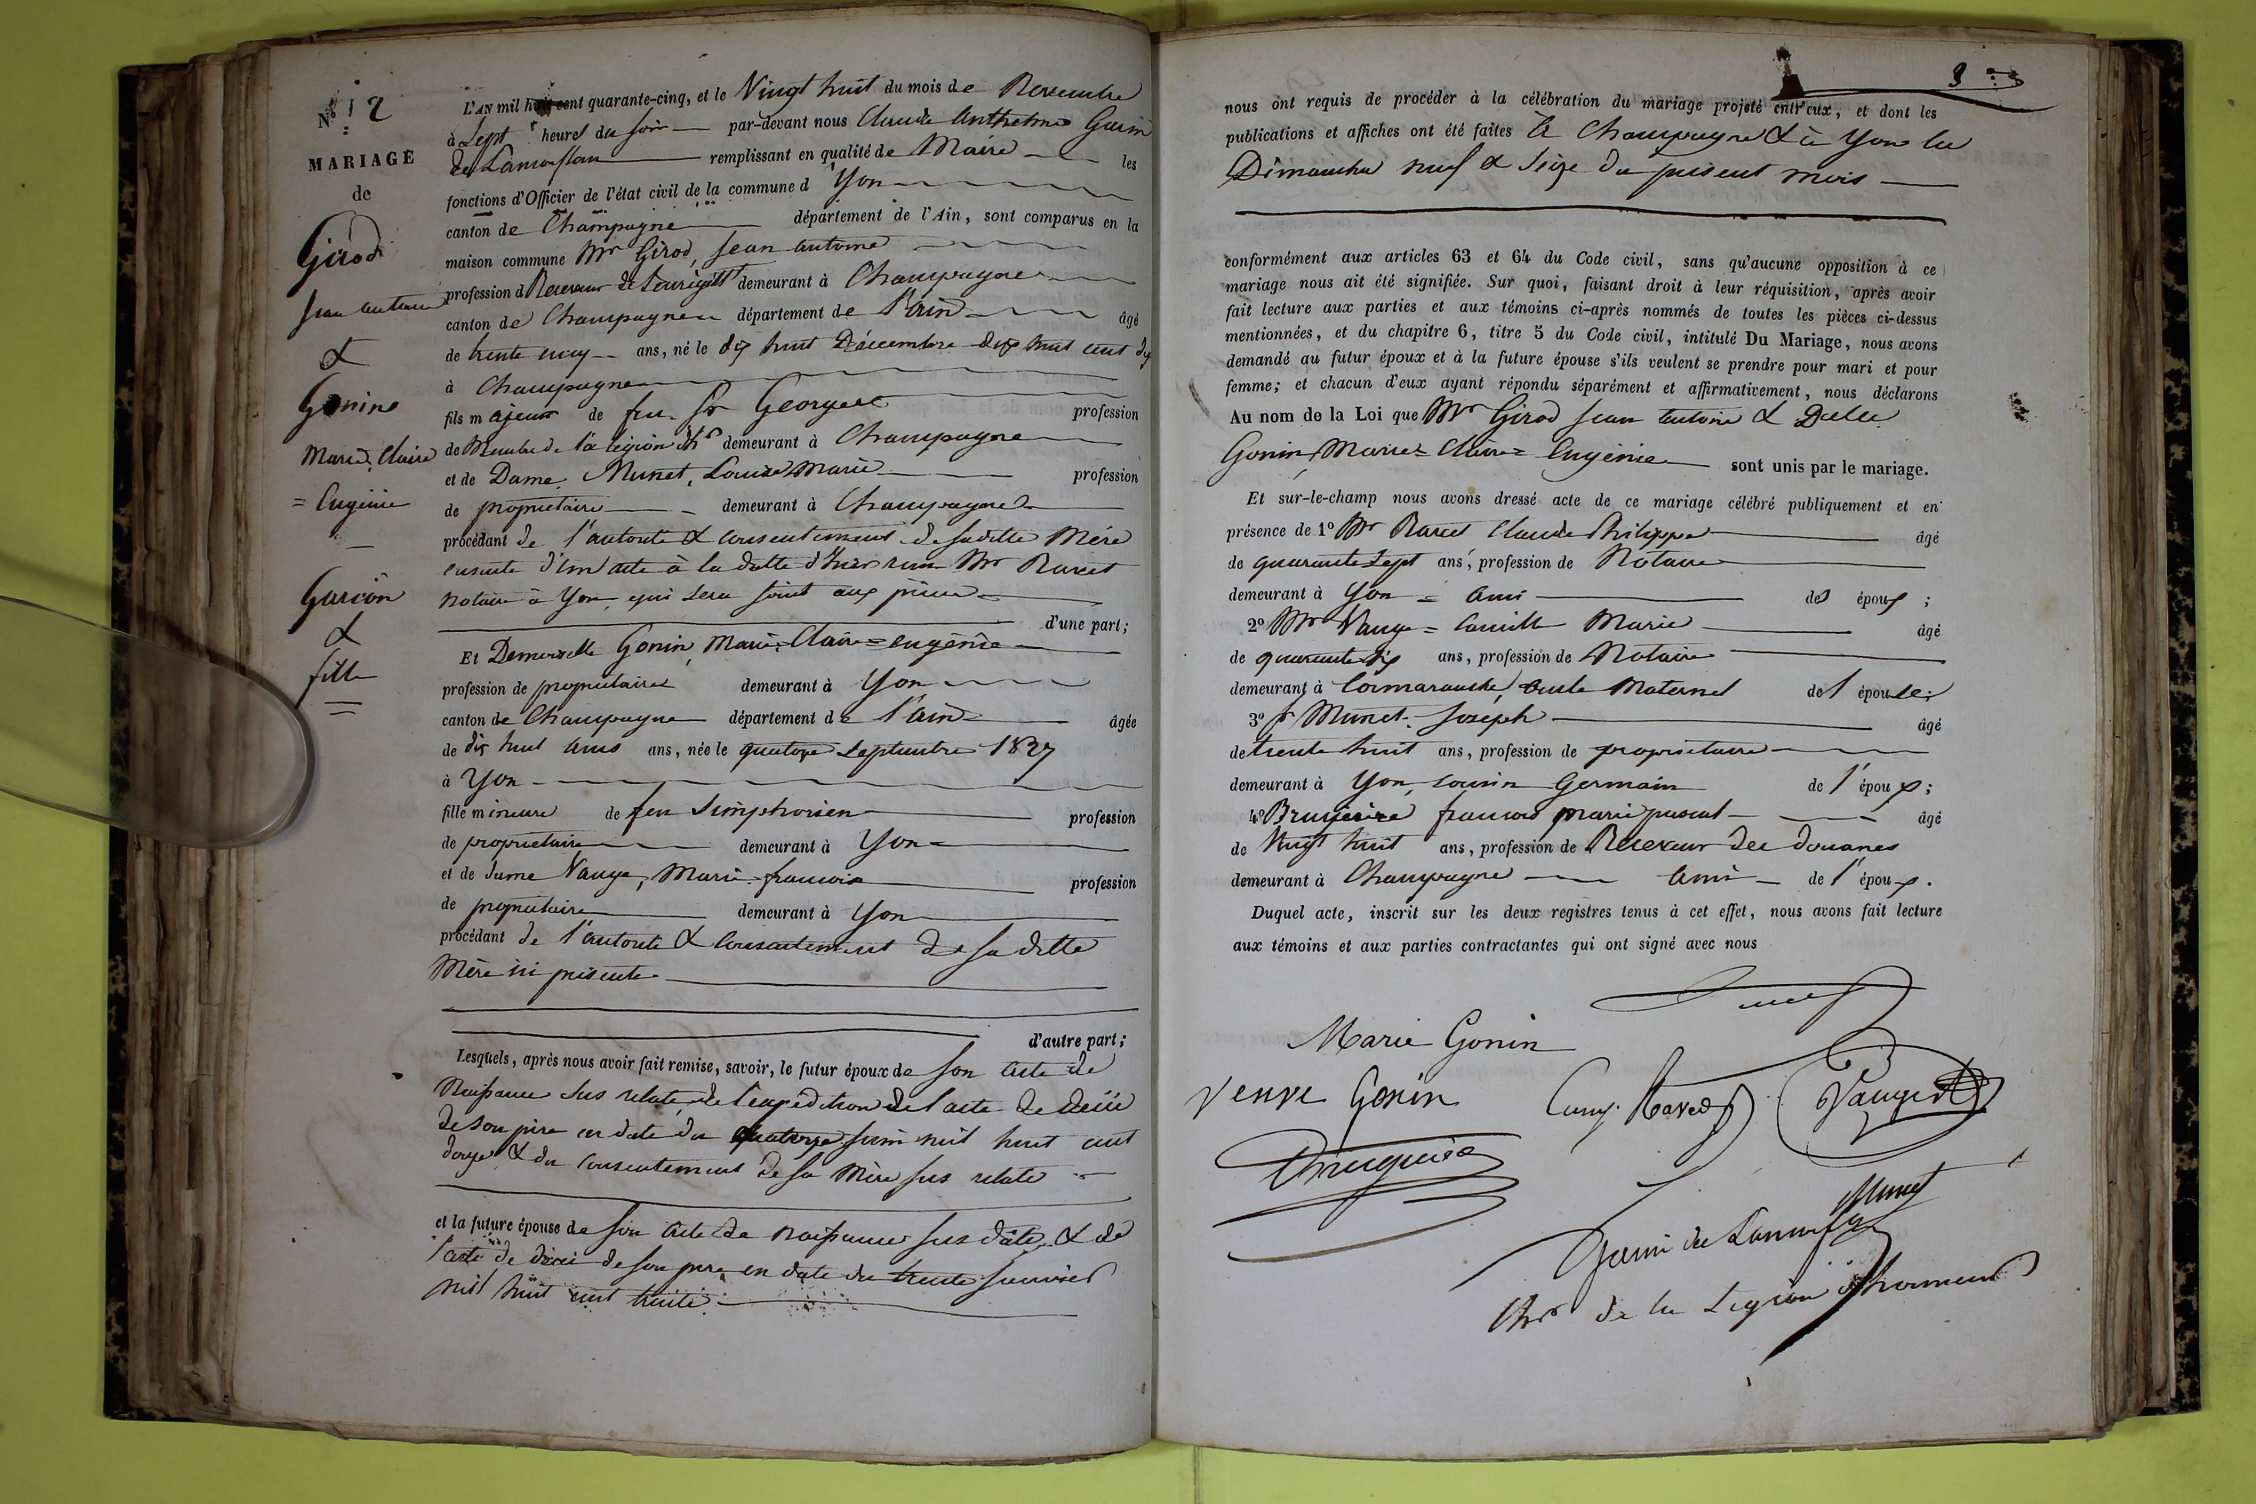 N° 12
MARIAGE
de
Girod
Jean antoine
&
Gonin
Marie=Claire
=Eugénie
Garçon
&
fille
L'AN mil huit cent quarante-cinq, et le Vingt huit du mois de Novembre
à Sept heures du soir par-devant nous Claude Anthelme Garin
de Lamorflan remplissant en qualité de Maire les
fonctions d'Officier de l'état civil de la commune d Yon
canton de Champagne département de l'Ain, sont comparus en la
maison commune Mr Girod, Jean antoine
profession d Receveur de l'enregistt demeurant à Champagne
canton de Champagne département de l'ain âgé
de trente cinq ans, né le dix huit Décembre dix huit cent dix
à Champagne
fils majeur de feu Sr Georges profession
de Membre de la légion d'hr demeurant à Champagne
et de Dame Munet, Louise Marie profession
de propriétaire demeurant à Champagne
procédant de l'autorité & consentement de sa ditte Mère
ensuite d'un acte à la datte d'hier reçu Mr Ravet
notaire à Yon, qui sera joint aux pièces
d'une part;
Et Demoiselle Gonin, Marie=Claire=eugénie
profession de propriétaire demeurant à Yon
canton de Champagne département de l'ain âgée
de dix huit ans ans, née le quatorze Septembre 1827
à Yon
fille mineure de feu Simphorien profession
de propriétaire demeurant à Yon
et de dame Vauge, Marie françoise profession
de propriétaire demeurant à Yon
procédant de l'autorité & consentement de sa ditte
Mère ici présente
d'autre part;
Lesquels, après nous avoir fait remise, savoir, le futur époux de son acte de
Naissance sus relaté, de l'expédition de l'acte de décè
de son père en date du quatorze juin mil huit cent
douze & du consentement de sa Mère sus relaté
et la future épouse de son acte de naissance sus daté & de
l'acte de décè de son père en date du trente janvier
mil huit cent trente
3
nous ont requis de procéder à la célébration du mariage projeté entr'eux, et dont les
publications et affiches ont été faites à Champagne & à Yon les
Dimanches neuf & seize du présent mois
conformément aux articles 63 et 64 du Code civil, sans qu'aucune opposition à ce
mariage nous ait été signifiée. Sur quoi, faisant droit à leur réquisition, après avoir
fait lecture aux parties et aux témoins ci-après nommés de toutes les pièces ci-dessus
mentionnées, et du chapitre 6, titre 5 du Code civil, intitulé Du Mariage, nous avons
demandé au futur époux et à la future épouse s'ils veulent se prendre pour mari et pour
femme; et chacun d'eux ayant répondu séparément et affirmativement, nous déclarons
Au nom de la Loi que Mr Girod Jean antoine & Delle
Gonin, Marie=Claire=Eugénie sont unis par le mariage.
Et sur-le-champ nous avons dressé acte de ce mariage célébré publiquement et en
présence de 1° Mr Ravet Claude Philippe âgé
de quarante sept ans, profession de Notaire
demeurant à Yon = ami des époux;
2° Mr Vauge = Camille Marie âgé
de quarante dix ans, profession de Notaire
demeurant à Cormaranche, oncle Maternel de l'épouse;
3° Sr Munet Joseph âgé
de trente huit ans, profession de propriétaire
demeurant à Yon, cousin Germain de l'époux;
4° Bruguière françois marie pascal âgé
de Vingt huit ans, profession de Receveur des douanes
demeurant à Champagne ami de l'époux.
Duquel acte, inscrit sur les deux registres tenus à cet effet, nous avons fait lecture
aux témoins et aux parties contractantes qui ont signé avec nous
Marie Gonin
Veuve Gonin
Ravet
Vauge
Bruguière
Munet
Garin de Lamorflan
Chr de la Légion d'honneur